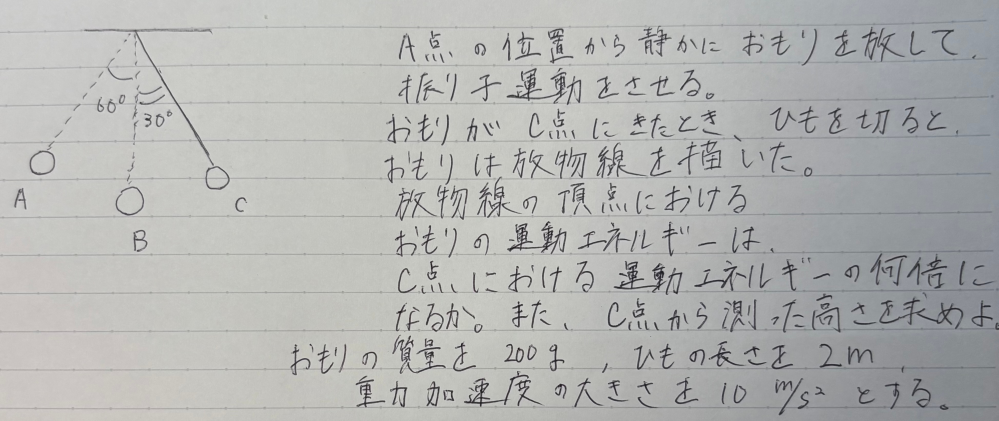 A点の位置から静かにおもりを放して、
振り子運動をさせる。
おもりがC点にきたとき、ひもを切ると、
おもりは放物線を描いた。
放物線の頂点における
おもりの運動エネルギーは、
C点における運動エネルギーの何倍に
なるか。また、C点から測った高さを求めよ。
おもりの質量を200g、ひもの長さを2m、
重力加速度の大きさを10 m/s²とする。
60°
30°
A
B
C